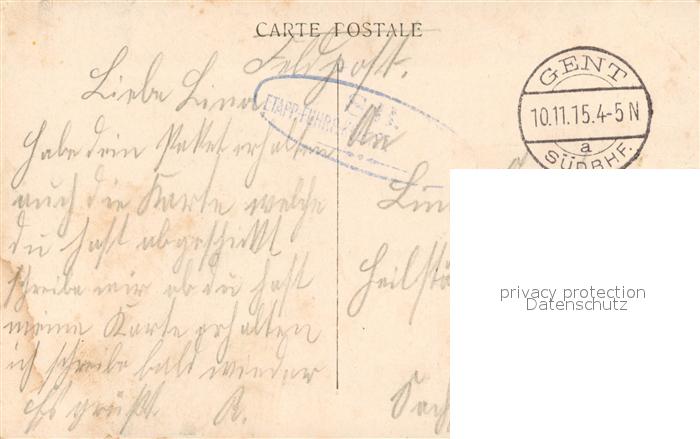 CARTE POSTALE
Feldpost.
Liebe Lina
ETAPP-FUHRP
GENT
10.11.15.4-5N
a
SÜDBHF.
An
Habe dein Paket erhalten
auch die Karte welche
du hast abgeschickt
schreibe mir ob du hast
meine Karte erhalten
ich schreibe bald wieder
Es grüßt R.
Lin
Heilstä
Sach
privacy protection
Datenschutz